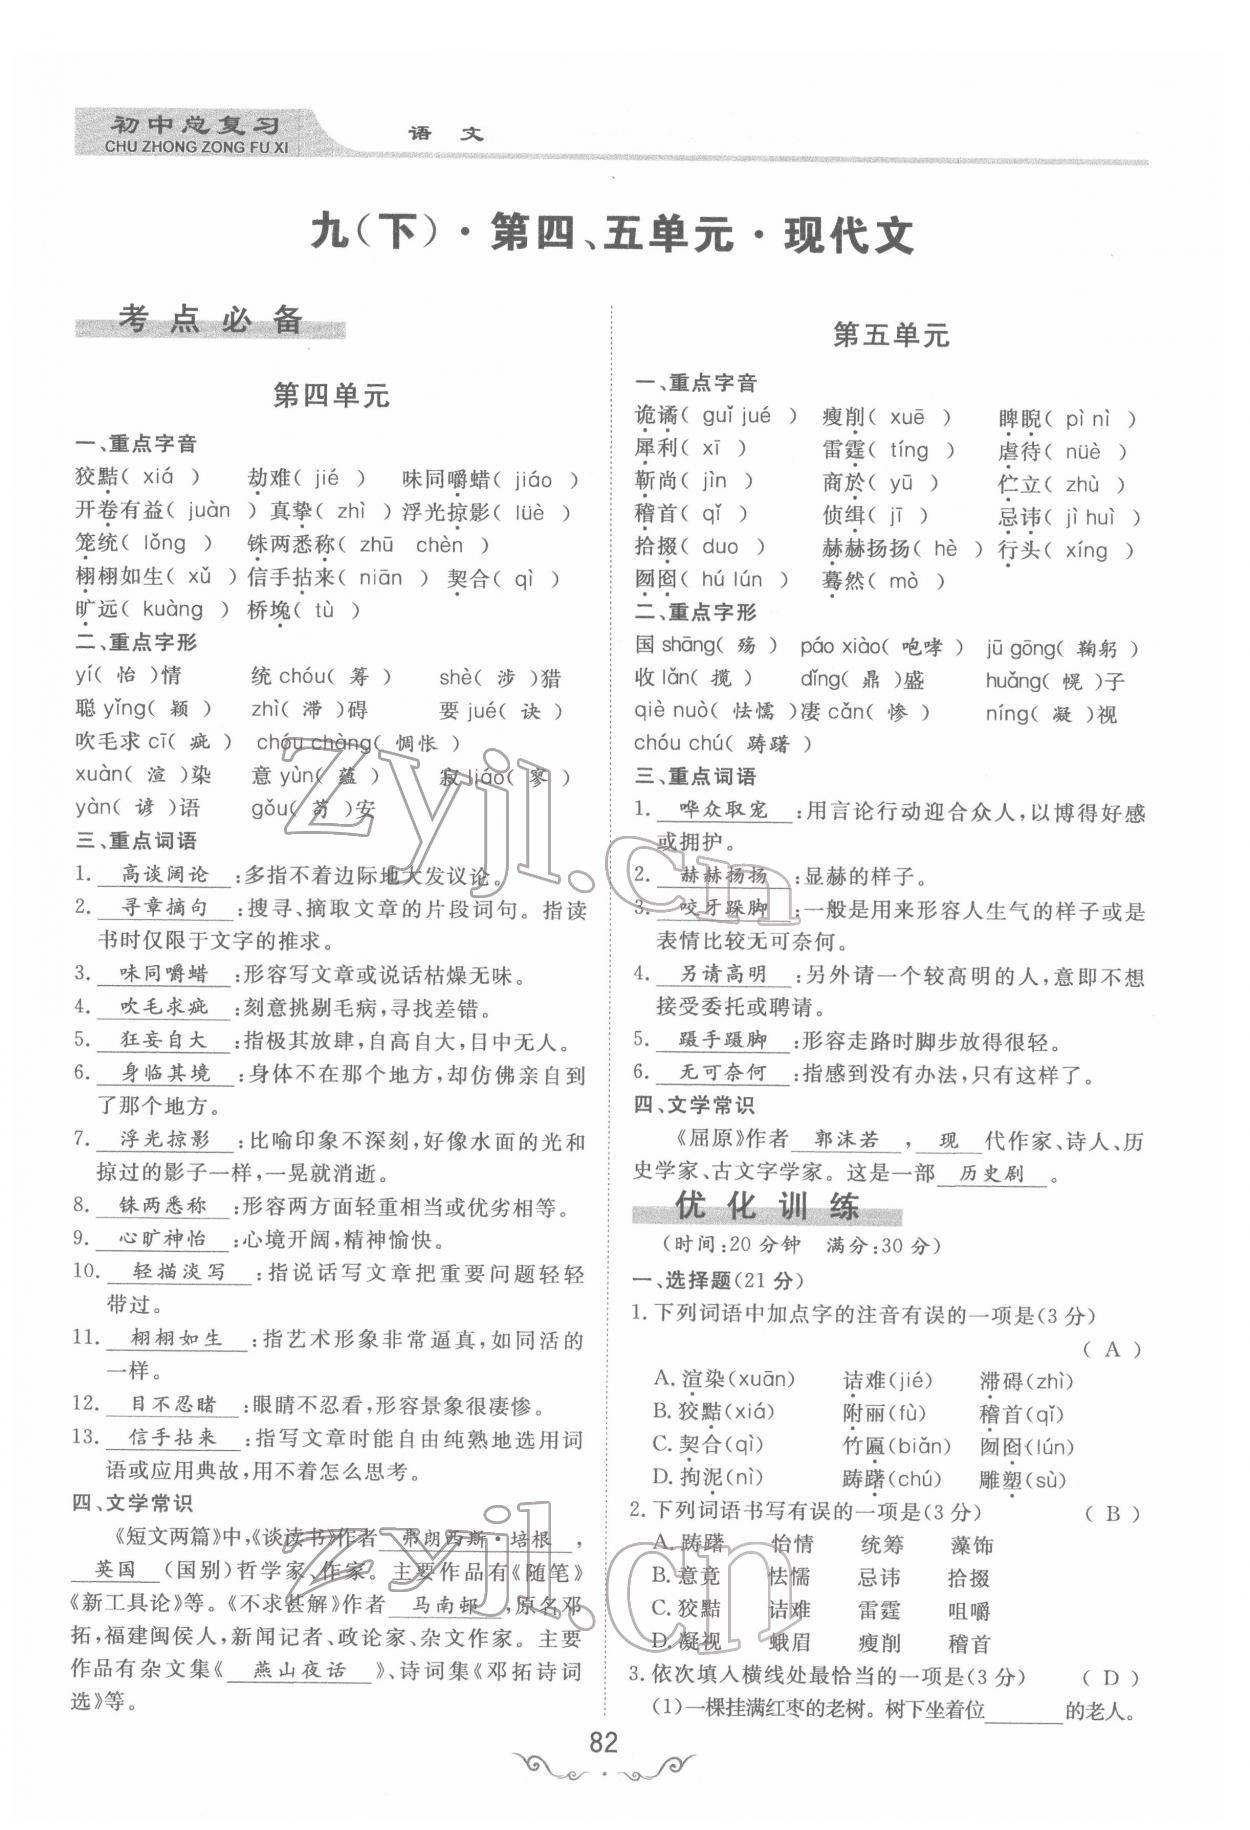 初中总复习
CHU ZHONG ZONG FU XI
语 文
九(下)·第四、五单元·现代文
考点必备
第四单元
一、重点字音
狡黠( xiá ) 劫难( jié ) 味同嚼蜡( jiáo )
开卷有益( juàn ) 真挚( zhì ) 浮光掠影( lüè )
笼统( lǒng ) 铢两悉称( zhū chèn )
栩栩如生( xǔ ) 信手拈来( niān ) 契合( qì )
旷远( kuàng ) 桥堍( tù )
二、重点字形
yí( 怡 )情 统 chóu( 筹 ) shè( 涉 )猎
聪 yǐng( 颖 ) zhì( 滞 )碍 要 jué( 诀 )
吹毛求 cī( 疵 ) chóu chàng( 惆怅 )
xuàn( 渲 )染 意 yùn( 蕴 ) 寂 liáo( 寥 )
yàn( 谚 )语 gǒu( 苟 )安
三、重点词语
1. 高谈阔论 :多指不着边际地大发议论。
2. 寻章摘句 :搜寻、摘取文章的片段词句。指读
书时仅限于文字的推求。
3. 味同嚼蜡 :形容写文章或说话枯燥无味。
4. 吹毛求疵 :刻意挑剔毛病,寻找差错。
5. 狂妄自大 :指极其放肆,自高自大,目中无人。
6. 身临其境 :身体不在那个地方,却仿佛亲自到
了那个地方。
7. 浮光掠影 :比喻印象不深刻,好像水面的光和
掠过的影子一样,一晃就消逝。
8. 铢两悉称 :形容两方面轻重相当或优劣相等。
9. 心旷神怡 :心境开阔,精神愉快。
10. 轻描淡写 :指说话写文章把重要问题轻轻
带过。
11. 栩栩如生 :指艺术形象非常逼真,如同活的
一样。
12. 目不忍睹 :眼睛不忍看,形容景象很凄惨。
13. 信手拈来 :指写文章时能自由纯熟地选用词
语或应用典故,用不着怎么思考。
四、文学常识
《短文两篇》中,《谈读书》作者 弗朗西斯·培根 ,
英国 (国别)哲学家、作家。主要作品有《随笔》
《新工具论》等。《不求甚解》作者 马南邨 ,原名邓
拓,福建闽侯人,新闻记者、政论家、杂文作家。主要
作品有杂文集《 燕山夜话 》、诗词集《邓拓诗词
选》等。
第五单元
一、重点字音
诡谲( guǐ jué ) 瘦削( xuē ) 睥睨( pì nì )
犀利( xī ) 雷霆( tíng ) 虐待( nüè )
靳尚( jìn ) 商於( yū ) 伫立( zhù )
稽首( qǐ ) 侦缉( jī ) 忌讳( jì huì )
拾掇( duo ) 赫赫扬扬( hè ) 行头( xíng )
囫囵( hú lún ) 蓦然( mò )
二、重点字形
国 shāng( 殇 ) páo xiào( 咆哮 ) jū gōng( 鞠躬 )
收 lǎn( 揽 ) dǐng( 鼎 )盛 huǎng( 幌 )子
qiè nuò( 怯懦 ) 凄 cǎn( 惨 ) níng( 凝 )视
chóu chú( 踌躇 )
三、重点词语
1. 哗众取宠 :用言论行动迎合众人,以博得好感
或拥护。
2. 赫赫扬扬 :显赫的样子。
3. 咬牙跺脚 :一般是用来形容人生气的样子或是
表情比较无可奈何。
4. 另请高明 :另外请一个较高明的人,意即不想
接受委托或聘请。
5. 蹑手蹑脚 :形容走路时脚步放得很轻。
6. 无可奈何 :指感到没有办法,只有这样了。
四、文学常识
《屈原》作者 郭沫若 , 现 代作家、诗人、历
史学家、古文字学家。这是一部 历史剧 。
优化训练
(时间:20分钟 满分:30分)
一、选择题(21分)
1. 下列词语中加点字的注音有误的一项是(3分)
( A )
A. 渲染(xuān) 诘难(jié) 滞碍(zhì)
B. 狡黠(xiá) 附丽(fù) 稽首(qǐ)
C. 契合(qì) 竹匾(biǎn) 囫囵(lún)
D. 拘泥(nì) 踌躇(chú) 雕塑(sù)
2. 下列词语书写有误的一项是(3分) ( B )
A. 踌躇 怡情 统筹 藻饰
B. 意竟 怯懦 忌讳 拾掇
C. 狡黠 诘难 雷霆 咀嚼
D. 凝视 蛾眉 瘦削 稽首
3. 依次填入横线处最恰当的一项是(3分) ( D )
(1)一棵挂满红枣的老树。树下坐着位______的老人。
82
zyjl.cn
zyjl.cn